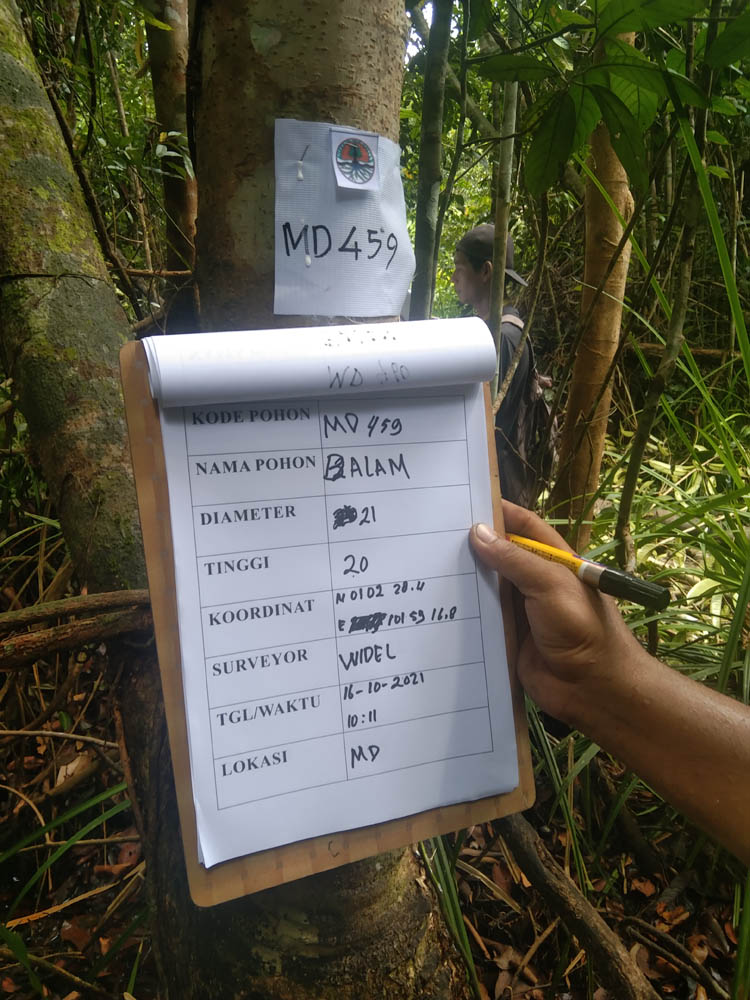 MD459
KODE POHON MD 459
NAMA POHON BALAM
DIAMETER 21
TINGGI 20
KOORDINAT N 01 02 20.4
E 101 59 16.8
SURVEYOR WIDEL
TGL/WAKTU 16-10-2021
10:11
LOKASI MD